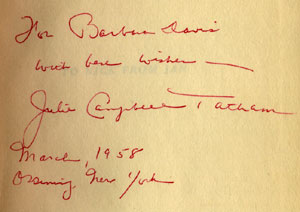 For Barbara Davis
with best wishes —
Julie Campbell Tatham
March, 1958
Ossining, New York